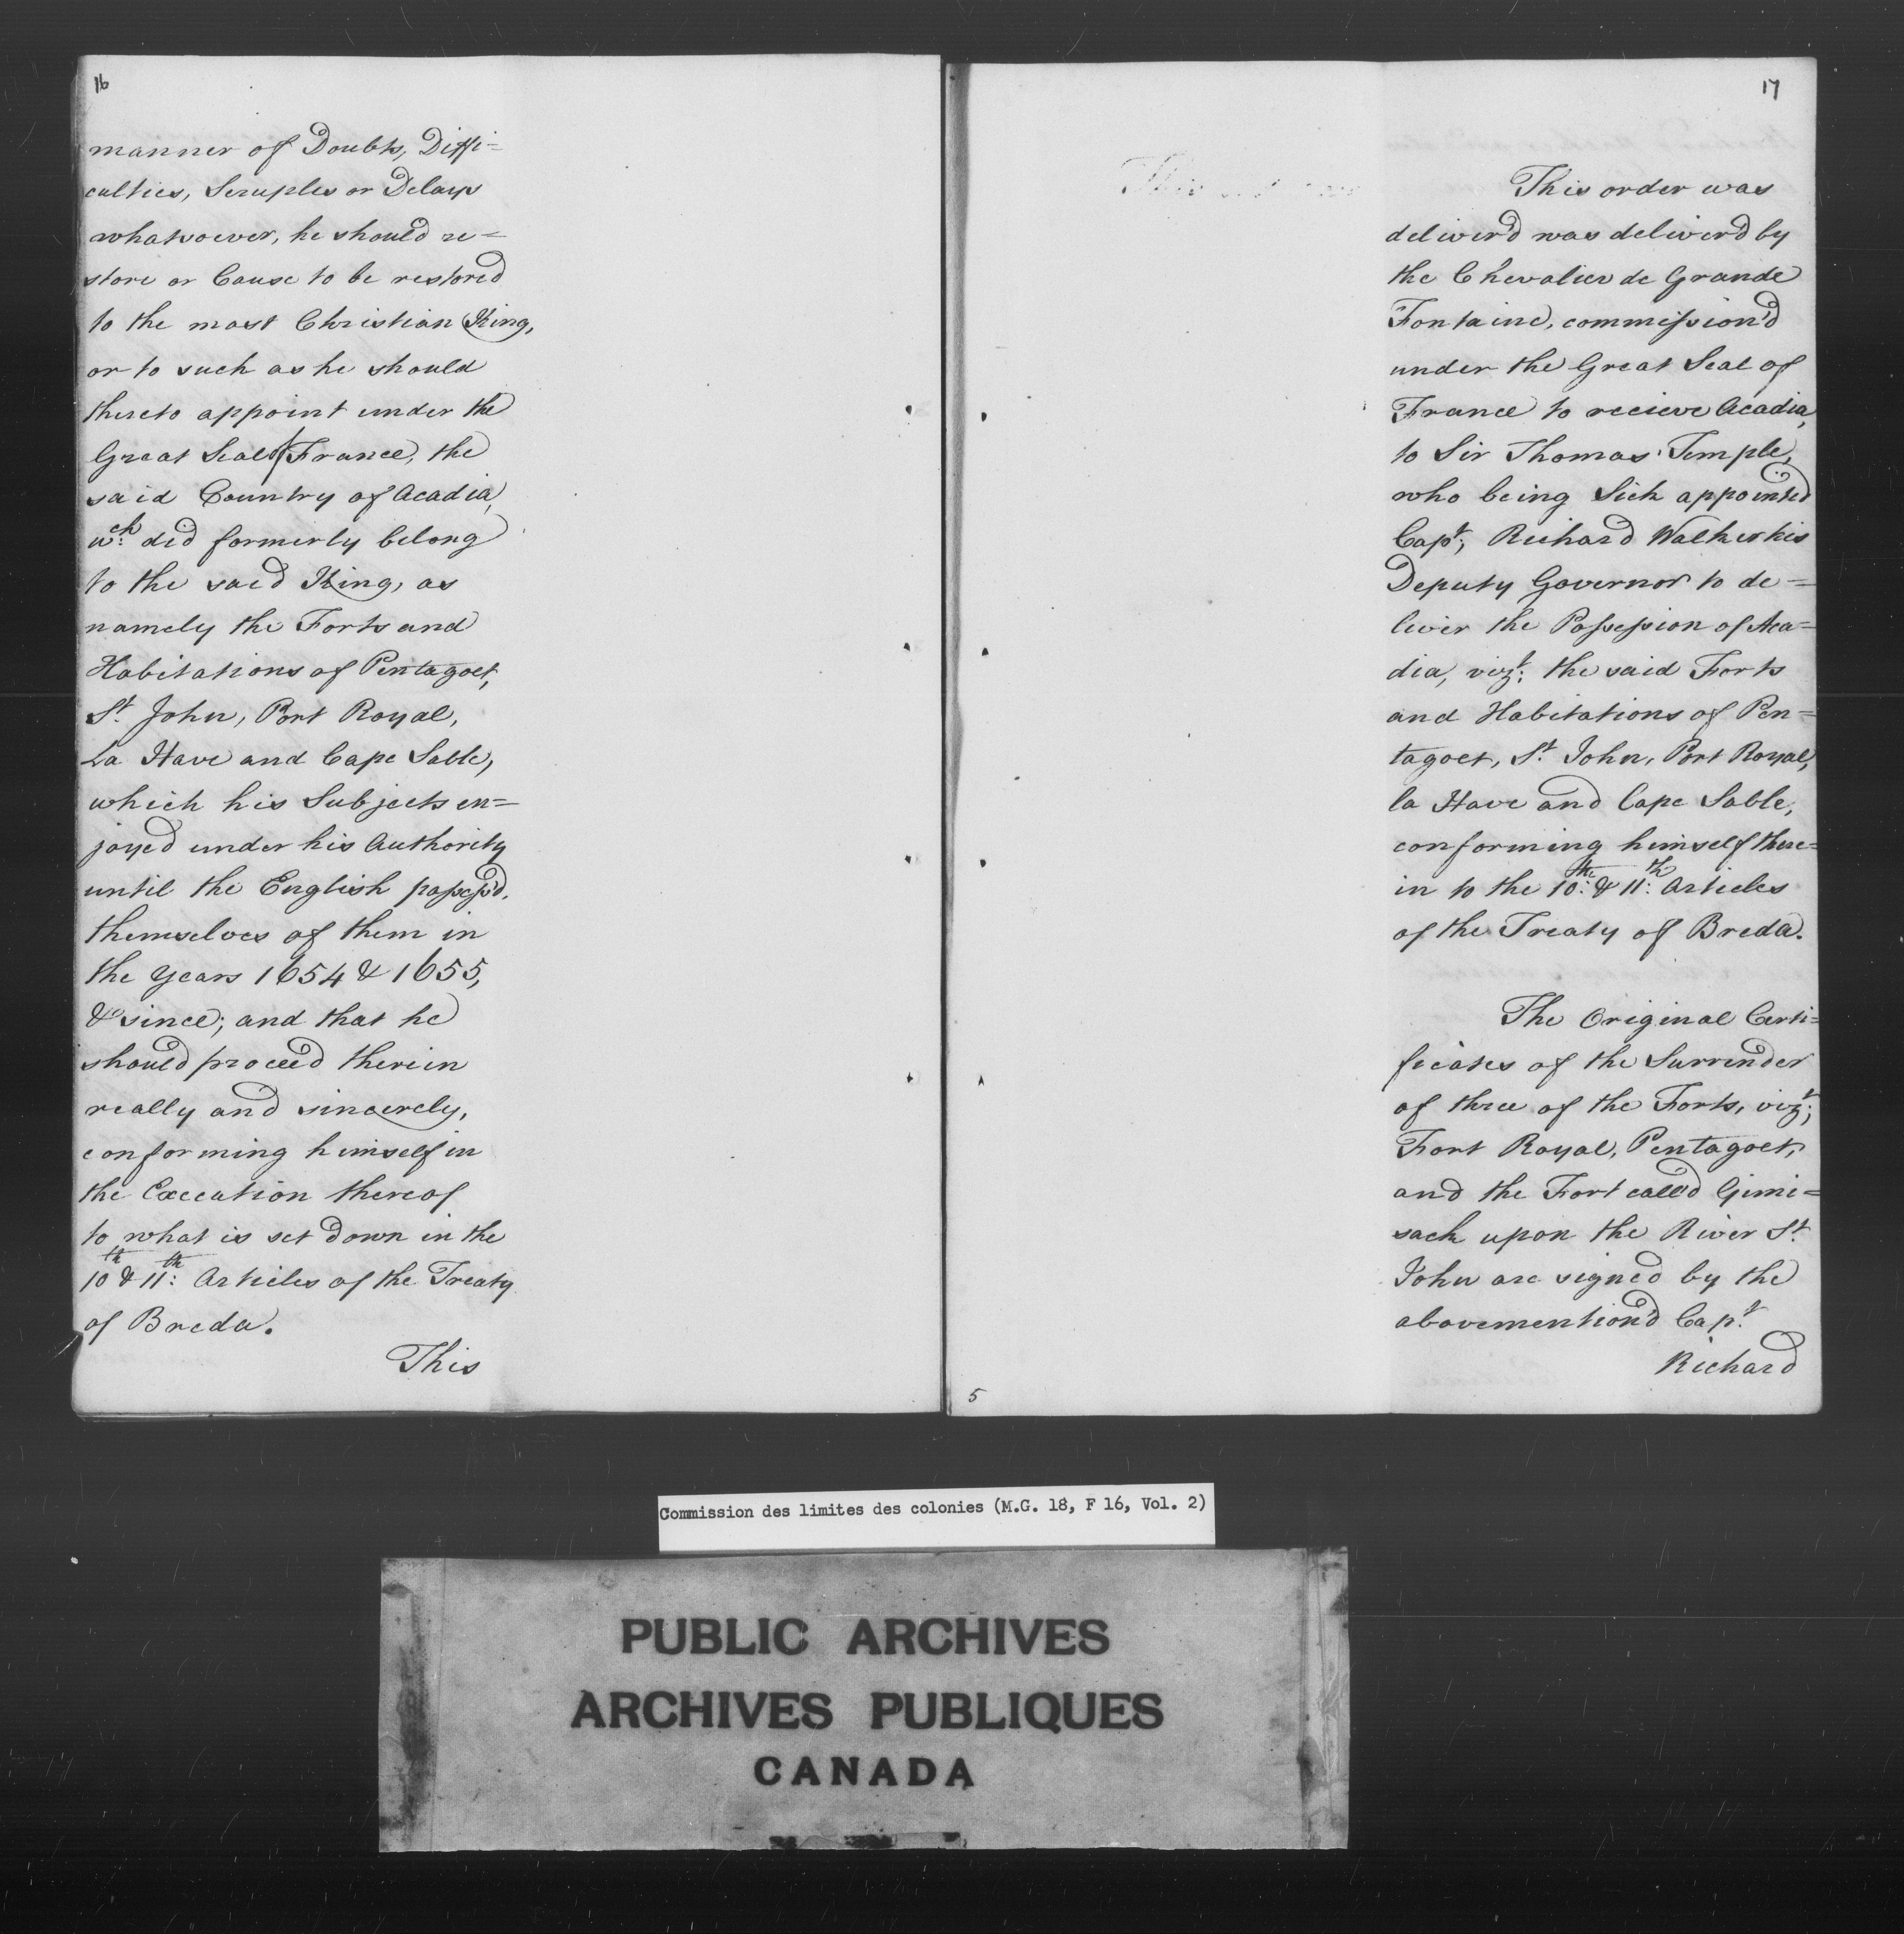 16
manner of Doubts, Diffi=
culties, Scruples or Delays
whatsoever, he should re=
store or Cause to be restored
to the most Christian King,
or to such as he should
thereto appoint under the
Great Seal of France, the
said Country of Acadia,
wch: did formerly belong
to the said King, as
namely the Forts and
Habitations of Pentagoet,
St. John, Port Royal,
La Have and Cape Sable,
which his Subjects en=
joyed under his Authority
until the English possess'd.
themselves of them in
the Years 1654 & 1655,
& since; and that he
should proceed therein
really and sincerely,
conforming himself in
the Execution thereof
to what is set down in the
10th & 11th: Articles of the Treaty
of Breda.
This
17
This order was
deliver'd was deliver'd by
the Chevalier de Grande
Fontaine, commission'd
under the Great Seal of
France to recieve Acadia,
to Sir Thomas Temple,
who being Sick appointed
Capt; Richard Walker his
Deputy Governor to de=
liver the Possession of Aca=
dia, vizt: the said Forts
and Habitations of Pen=
tagoet, St. John, Port Royal,
la Have and Cape Sable,
conforming himself there=
in to the 10th: & 11th: Articles
of the Treaty of Breda.
The Original Certi=
ficates of the Surrender
of three of the Forts, vizt;
Fort Royal, Pentagoet,
and the Fort call'd Gimi=
sack upon the River St.
John are signed by the
abovemention'd Capt.
Richard
5
Commission des limites des colonies (M.G. 18, F 16, Vol. 2)
PUBLIC ARCHIVES
ARCHIVES PUBLIQUES
CANADA